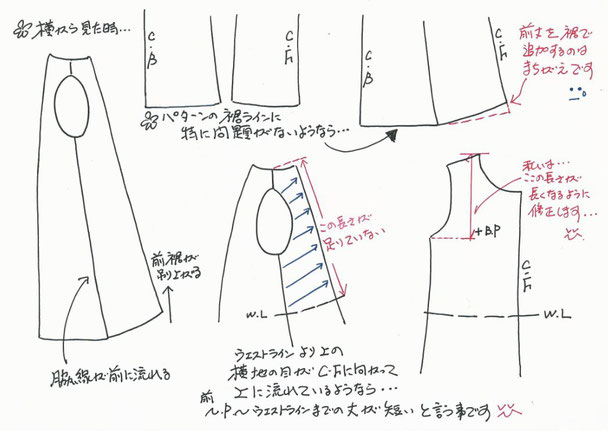 ※横から見た時…
前裾が
刺し上がる
脇線が前に流れる
C.B
C.F
※パターンの裾ラインに
特に問題がないようなら…
C.B
C.F
前丈を裾で
追加するのは
まちがえです
この長さが
足りていない
W.L
ウエストラインより上の
横地の目がC.Fに向かって
上に流れているようなら…
前
N.P～ウエストラインまでの丈が短いと言う事です
私は…
ここの長さが
長くなるように
修正します…
+B.P
C.F
W.L